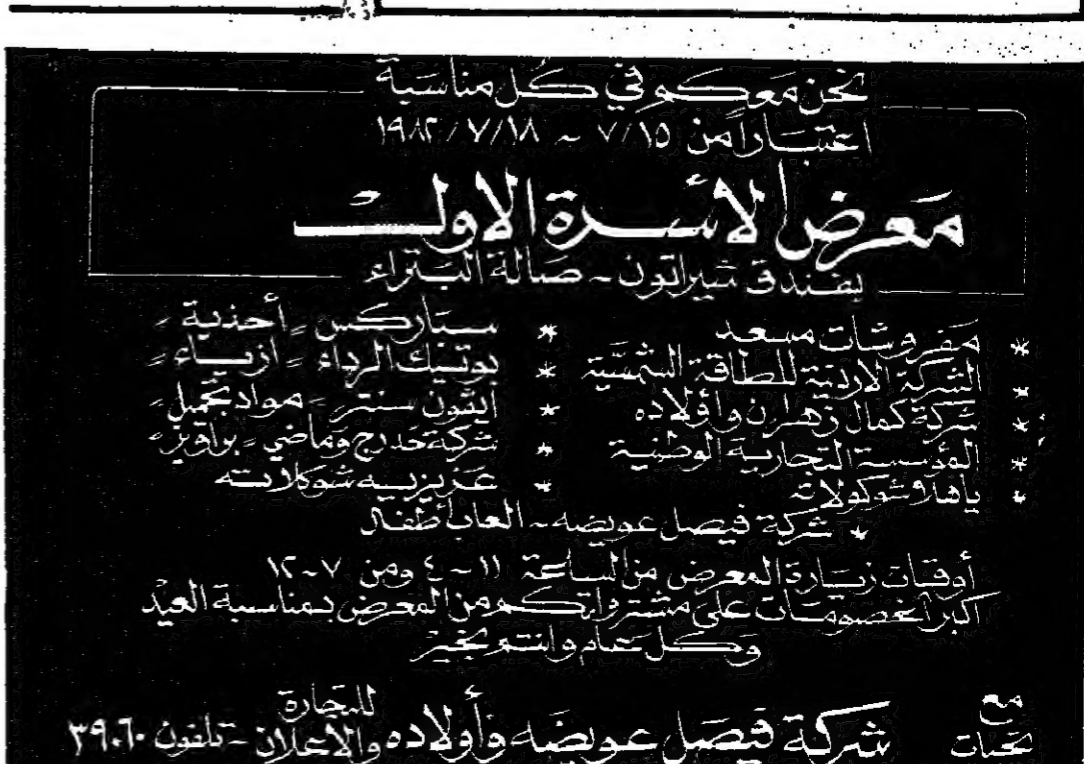 نحن معكم في كل مناسبة
اعتباراً من ٧/١٥ ~ ١٩٨٢/٧/١٨
معرض الأسرة الاول
بفندق شيراتون - صالة البتراء
* مفروشات مسعد
* الشركة الاردنية للطاقة الشمسية
* شركة كمال زهران وأولاده
* المؤسسة التجارية الوطنية
* يافا شوكولاته
* سباركس - أحذية -
* بوتيك الرداء - ازياء -
* ايفون سنتر - مواد تجميل -
* شركة حدرج وماضي - براويز -
* عزيزيه شوكلاته
* شركة فيصل عويضه - العاب أطفال
أوقات زيارة المعرض من الساعة ١١ - ٤ ومن ٧ - ١٢
اكبر الخصومات على مشترواتكم من المعرض بمناسبة العيد
وكل عام وانتم بخير
مع تحيات شركة فيصل عويضه وأولاده للتجارة والاعلان - تلفون ٣٩٠٦٠